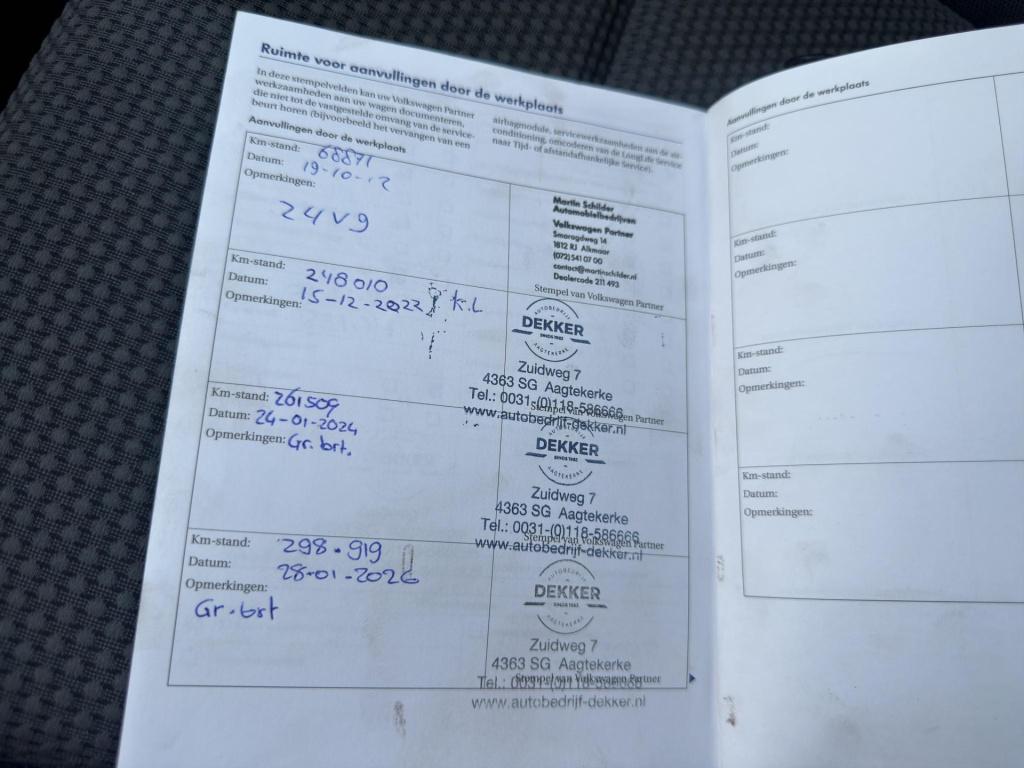 Ruimte voor aanvullingen door de werkplaats
In deze stempelvelden kan uw Volkswagen Partner
werkzaamheden aan uw wagen documenteren,
die niet tot de vastgestelde omvang van de service-
beurt horen (bijvoorbeeld het vervangen van een
airbagmodule, servicewerkzaamheden aan de air-
conditioning, omcoderen van de LongLife Service
naar Tijd- of afstandafhankelijke Service).
Aanvullingen door de werkplaats
Km-stand: 68871
Datum: 19-10-12
Opmerkingen:
24V9
Martin Schilder
Automobielbedrijven
Volkswagen Partner
Smaragdweg 14
1812 RJ Alkmaar
(072) 541 07 00
contact@martinschilder.nl
Dealercode 211 493
Stempel van Volkswagen Partner
Km-stand: 248010
Datum: 15-12-2022
Opmerkingen: K.L
AUTOBEDRIJF
DEKKER
SINDS 1982
AAGTEKERKE
Zuidweg 7
4363 SG Aagtekerke
Tel.: 0031-(0)118-586666
Stempel van Volkswagen Partner
www.autobedrijf-dekker.nl
Km-stand: 261509
Datum: 24-01-2024
Opmerkingen: Gr. brt.
DEKKER
SINDS 1982
AAGTEKERKE
Zuidweg 7
4363 SG Aagtekerke
Tel.: 0031-(0)118-586666
Stempel van Volkswagen Partner
www.autobedrijf-dekker.nl
Km-stand: 298.919
Datum: 28-01-2026
Opmerkingen:
Gr. brt
AUTOBEDRIJF
DEKKER
SINDS 1982
AAGTEKERKE
Zuidweg 7
4363 SG Aagtekerke
Stempel van Volkswagen Partner
Tel.: 0031-(0)118-586666
www.autobedrijf-dekker.nl
Aanvullingen door de werkplaats
Km-stand:
Datum:
Opmerkingen:
Km-stand:
Datum:
Opmerkingen:
Km-stand:
Datum:
Opmerkingen:
Km-stand:
Datum:
Opmerkingen: